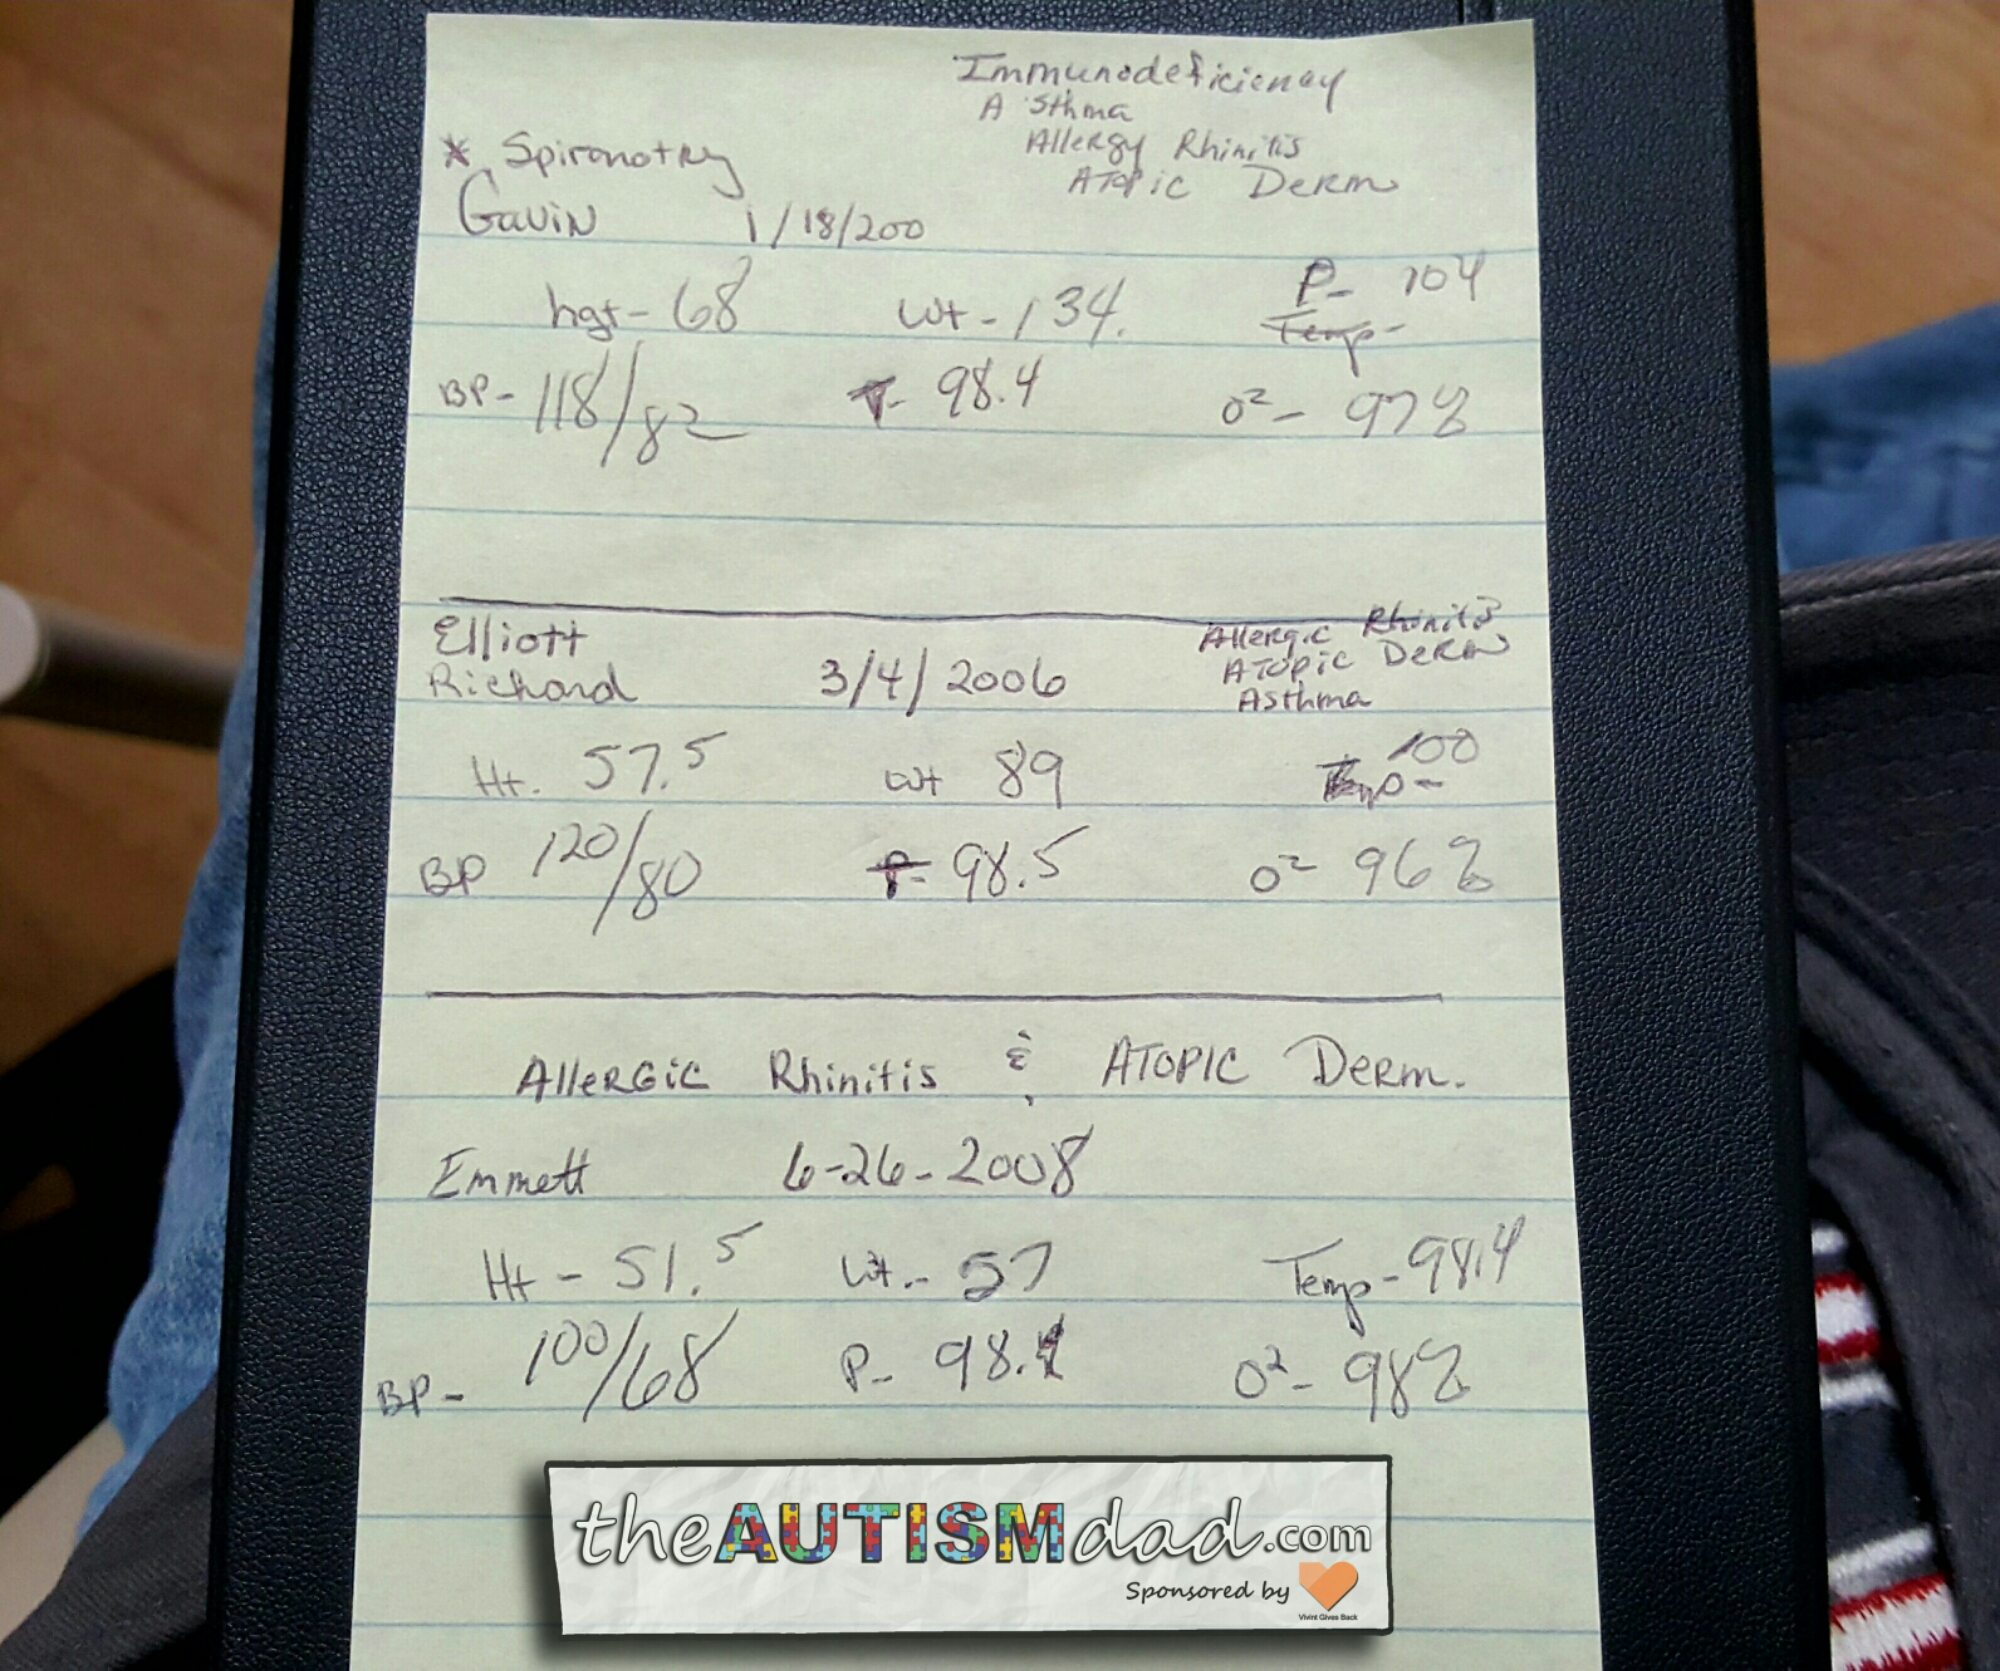 Immunodeficiency
Asthma
Allergy Rhinitis
Atopic Derm
* Spironotry
Gavin 1/18/200
hgt - 68 wt - 134. P- 104
Temp-
BP - 118/82 T- 98.4 O2 - 97%
Elliott Allergic Rhinitis
Richard 3/4/2006 Atopic Derm
Asthma
Ht. 57.5 wt 89 100
Temp-
BP 120/80 98.5 O2 96%
Allergic Rhinitis & Atopic Derm.
Emmett 6-26-2008
Ht - 51.5 Wt.- 57 Temp - 98.4
BP - 100/68 P- O2 - 98%
theAUTISMdad.com
Sponsored by
Vivint Gives Back